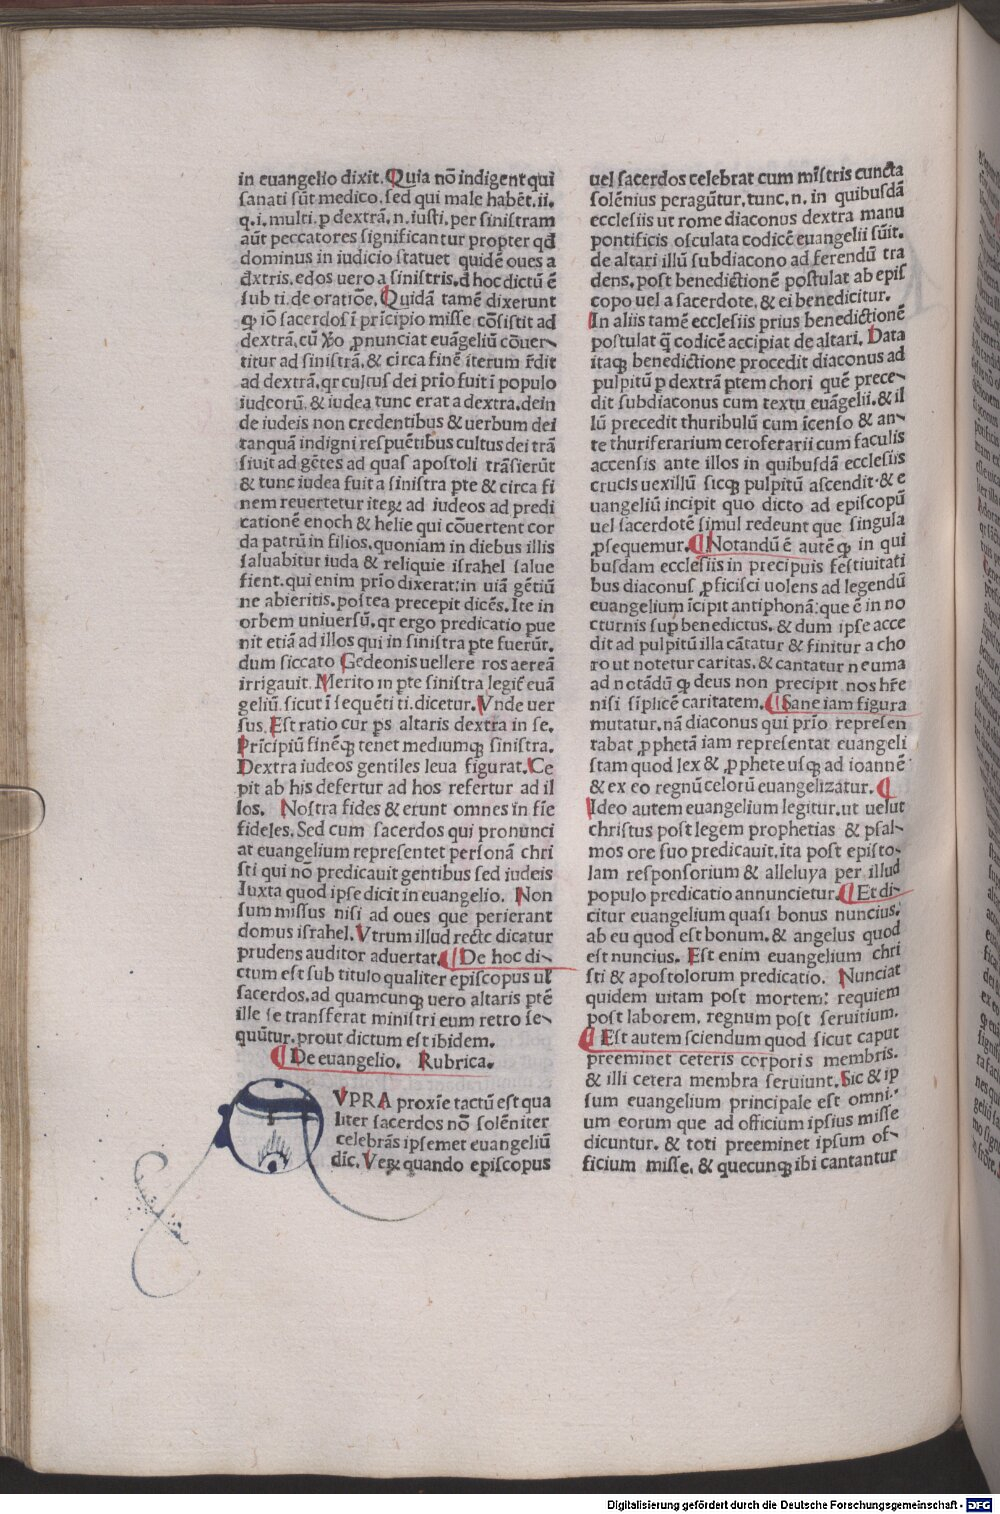 in euangelio dixit. Quia nō indigent qui
sanati sūt medico. sed qui male habēt. ii.
q. i. multi. ꝑ dextrā. n. iusti. per sinistram
aūt peccatores significantur propter qđ
dominus in iudicio statuet quidē oues a
dxtris. edos uero a sinistris. đ hoc dictū ē
sub ti. de oratiōe. Quidā tamē dixerunt
ꝙ iō sacerdos ī prīcipio misse cōsistit ad
dextrā. cū xp̄o ꝓnunciat euāgeliū cōuer-
titur ad sinistrā. & circa finē iterum r̄dit
ad dextrā. qr cultus dei prio fuit ī populo
iudeorū. & iudea tunc erat a dextra. dein
de iudeis non credentibus & uerbum dei
tanquā indigni respuētibus cultus dei trā
siuit ad gētes ad quas apostoli trāsierūt
& tunc iudea fuit a sinistra pte & circa fi
nem reuertetur iteꝝ ad iudeos ad predi
cationē enoch & helie qui cōuertent cor
da patrū in filios. quoniam in diebus illis
saluabitur iuda & reliquie israhel salue
fient. qui enim prīo dixerat: in uiā gētiū
ne abieritis. postea precepit dicēs. Ite in
orbem uniuersū. qr ergo predicatio pue
nit etiā ad illos qui in sinistra pte fuerūt.
dum siccato Gedeonis uellere ros aereā
irrigauit. Merito in pte sinistra legit̄ euā
geliū. sicut ī sequēti ti. dicetur. Vnde uer
sus. Est ratio cur ps altaris dextra in se.
Prīcipiū finēqꝫ tenet mediumqꝫ sinistra.
Dextra iudeos gentiles leua figurat. Ce
pit ab his defertur ad hos refertur ad il
los. Nostra fides & erunt omnes in fīe
fideles. Sed cum sacerdos qui pronunci
at euangelium representet personā chri
sti qui nō predicauit gentibus sed iudeis
Iuxta quod ipse dicit in euangelio. Non
sum missus nisi ad oues que perierant
domus israhel. Vtrum illud recte dicatur
prudens auditor aduertat. De hoc di-
ctum est sub titulo qualiter episcopus uł
sacerdos. ad quamcunqꝫ uero altaris ptē
ille se transferat ministri eum retro se-
quūtur. prout dictum est ibidem.
De euangelio. Rubrica.
SVPRA proxīe tactū est qua
liter sacerdos nō solēniter
celebrās ipsemet euangeliū
dic. Veꝝ quando episcopus
uel sacerdos celebrat cum mīstris cuncta
solēnius peragūtur. tunc. n. in quibusdā
ecclesiis ut rome diaconus dextra manu
pontificis osculata codicē euangelii sūit.
de altari illū subdiacono ad ferendū tra
dens. post benedictionē postulat ab epis
copo uel a sacerdote. & ei benedicitur.
In aliis tamē ecclesiis prius benedictionē
postulat q̄ codicē accipiat de altari. Data
itaqꝫ benedictione procedit diaconus ad
pulpitū ꝑ dextrā ptem chori quē prece-
dit subdiaconus cum textu euāgelii. & il
lū precedit thuribulū cum īcenso & an-
te thuriferarium ceroferarii cum faculis
accensis ante illos in quibusdā ecclesiis
crucis uexillū sicqꝫ pulpitū ascendit. & e
uangeliū incipit quo dicto ad episcopū
uel sacerdotē simul redeunt que singula
ꝓsequemur. Notandū ē autē ꝙ in qui
busdam ecclesiis in precipuis festiuitati
bus diaconus ꝓficisci uolens ad legendū
euangelium īcipit antiphonā: que ē in no
cturnis sup̱ benedictus. & dum ipse acce
dit ad pulpitū illa cātatur & finitur a cho
ro ut notetur caritas. & cantatur neuma
ad notādū ꝙ deus non precipit nos hr̄e
nisi sīplicē caritatem. Sane iam figura
mutatur. nā diaconus qui prīo represen
tabat ꝓphetā iam representat euangeli
stam quod lex & ꝓphete usqꝫ ad ioannē
& ex eo regnū celorū euangelizatur.
Ideo autem euangelium legitur. ut uelut
christus post legem prophetias & psal-
mos ore suo predicauit. ita post episto-
lam responsorium & alleluya per illud
populo predicatio annuncietur. Et di-
citur euangelium quasi bonus nuncius.
ab eu quod est bonum. & angelus quod
est nuncius. Est enim euangelium chri
sti & apostolorum predicatio. Nunciat
quidem uitam post mortem: requiem
post laborem. regnum post seruitium.
Est autem sciendum quod sicut caput
preeminet ceteris corporis membris.
& illi cetera membra seruiunt. Sic & ip
sum euangelium principale est omni.
um eorum que ad officium ipsius misse
dicuntur. & toti preeminet ipsum of-
ficium misse. & quecunqꝫ ibi cantantur
Digitalisierung gefördert durch die Deutsche Forschungsgemeinschaft - DFG